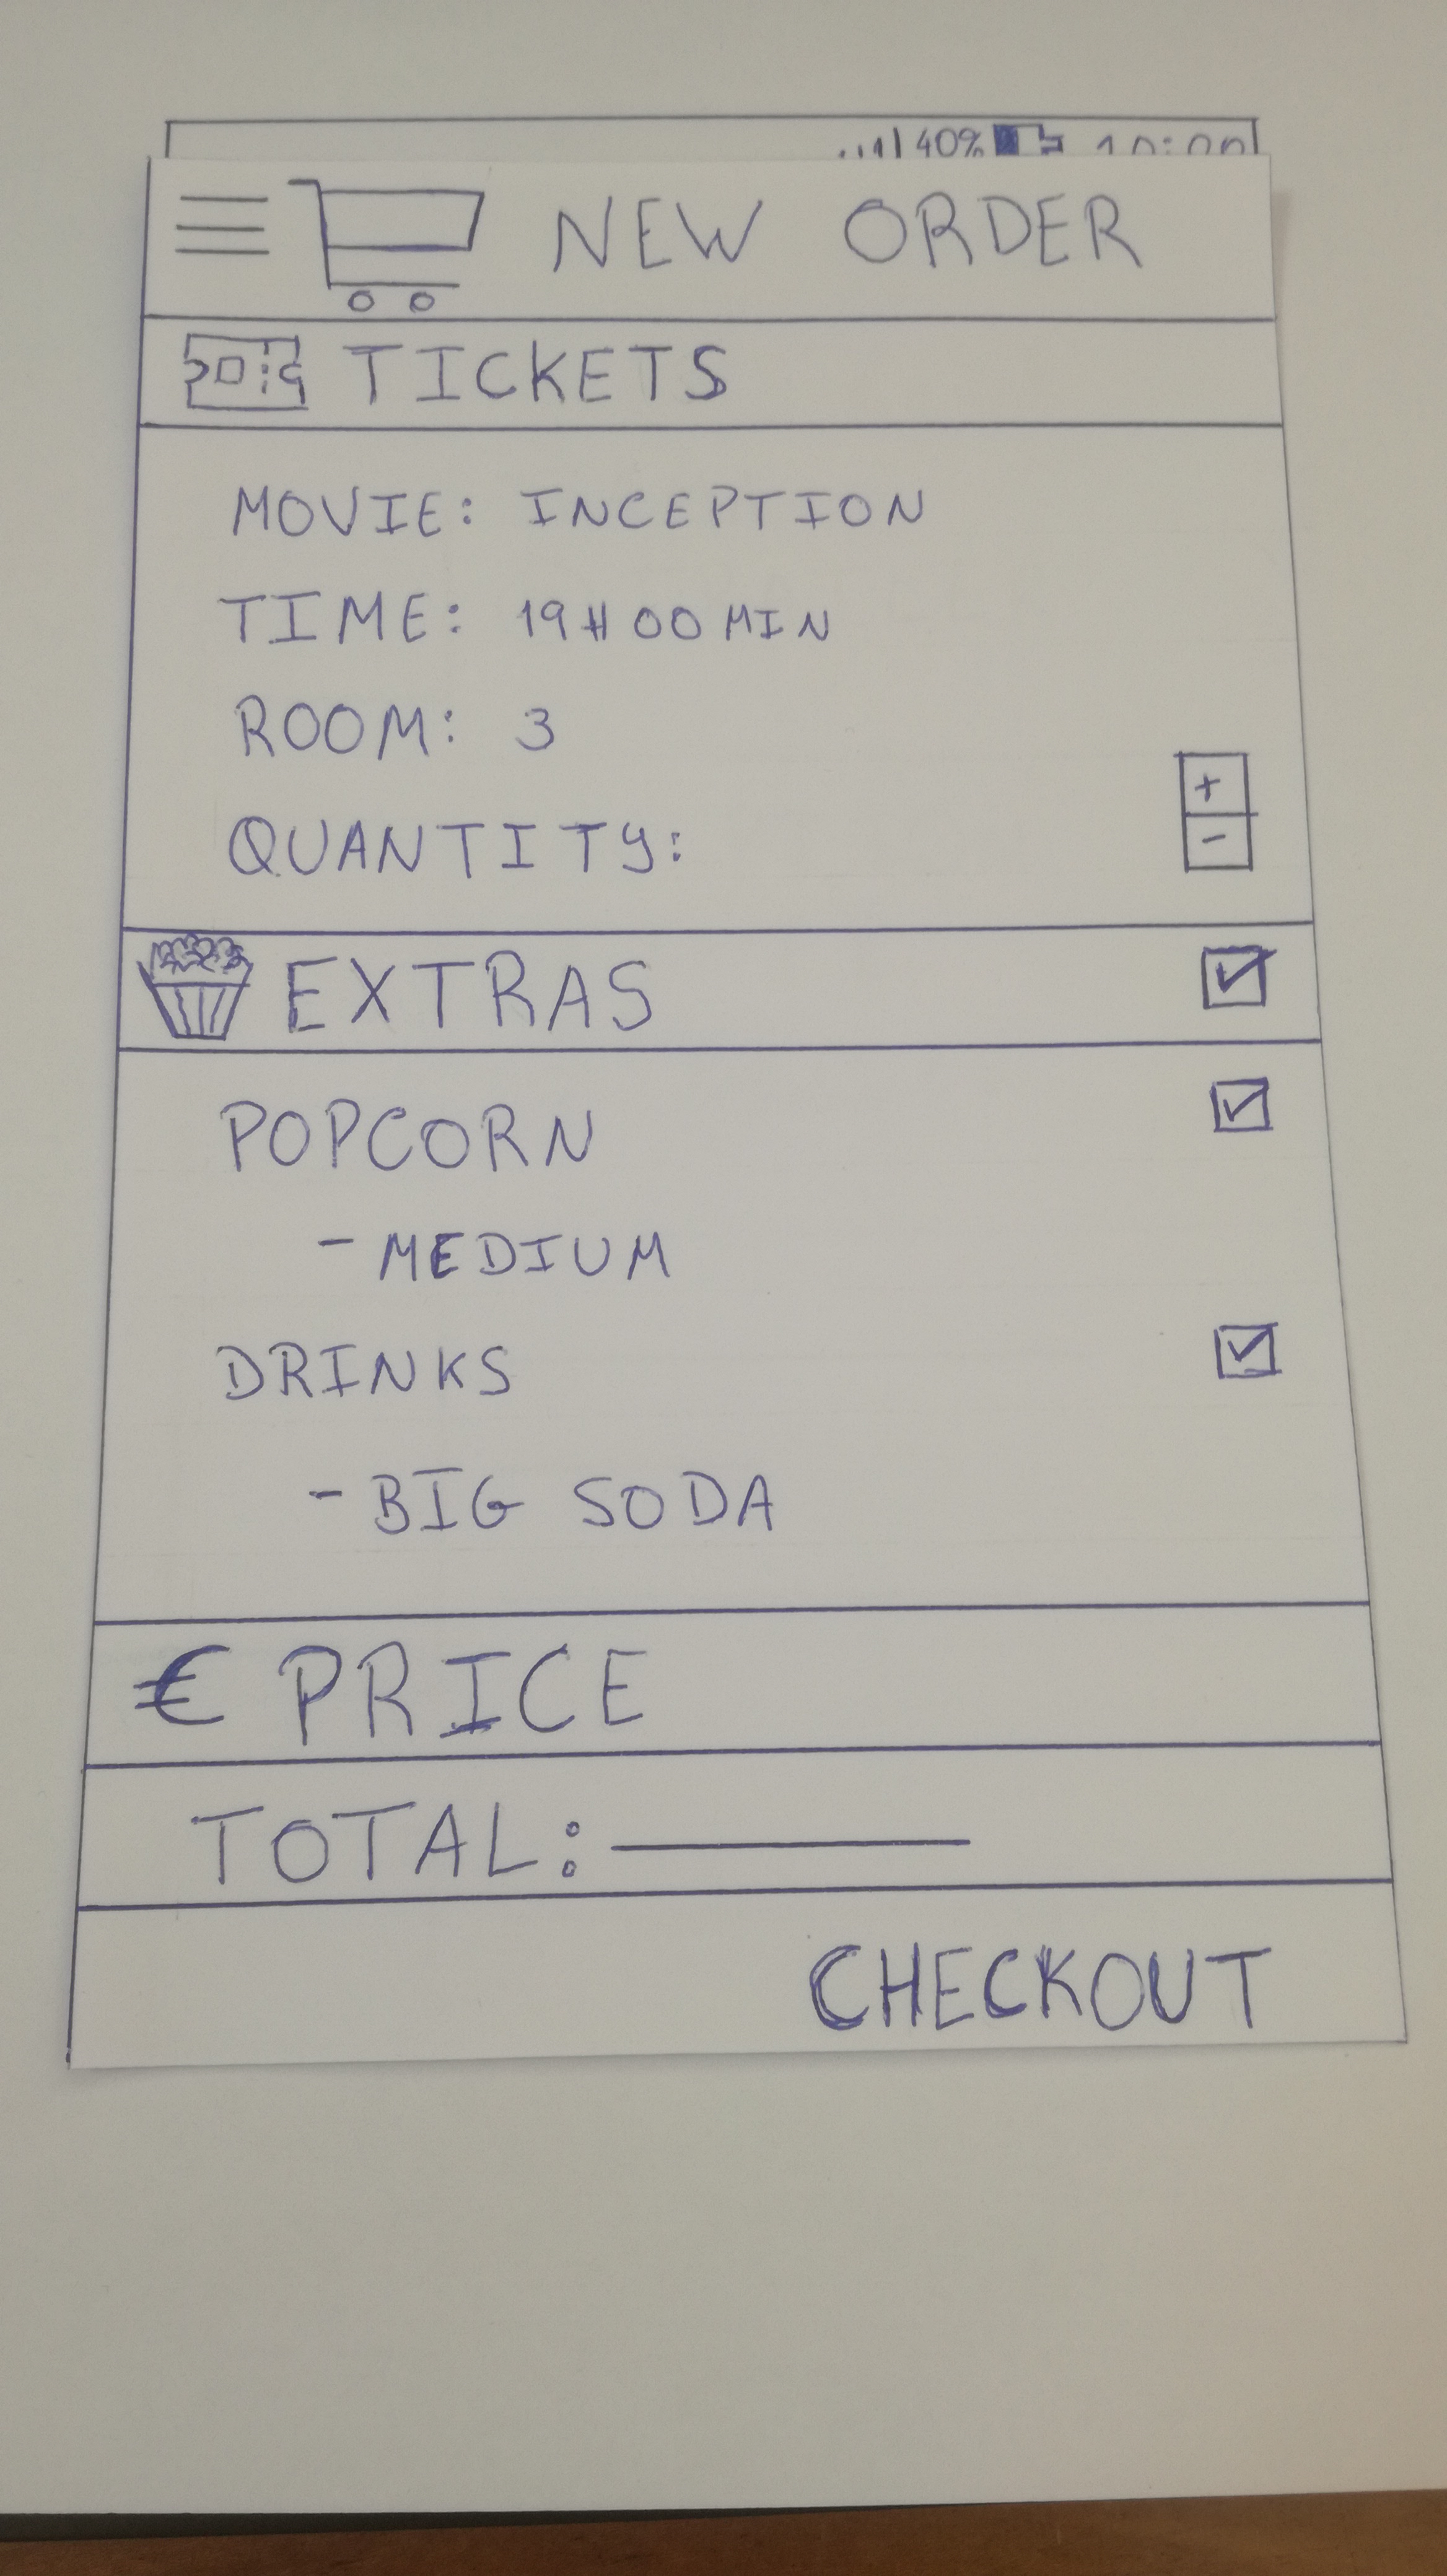 40% 10:00
NEW ORDER
TICKETS
MOVIE: INCEPTION
TIME: 19H00MIN
ROOM: 3
+
-
QUANTITY:
EXTRAS
POPCORN
- MEDIUM
DRINKS
- BIG SODA
€ PRICE
TOTAL:
CHECKOUT